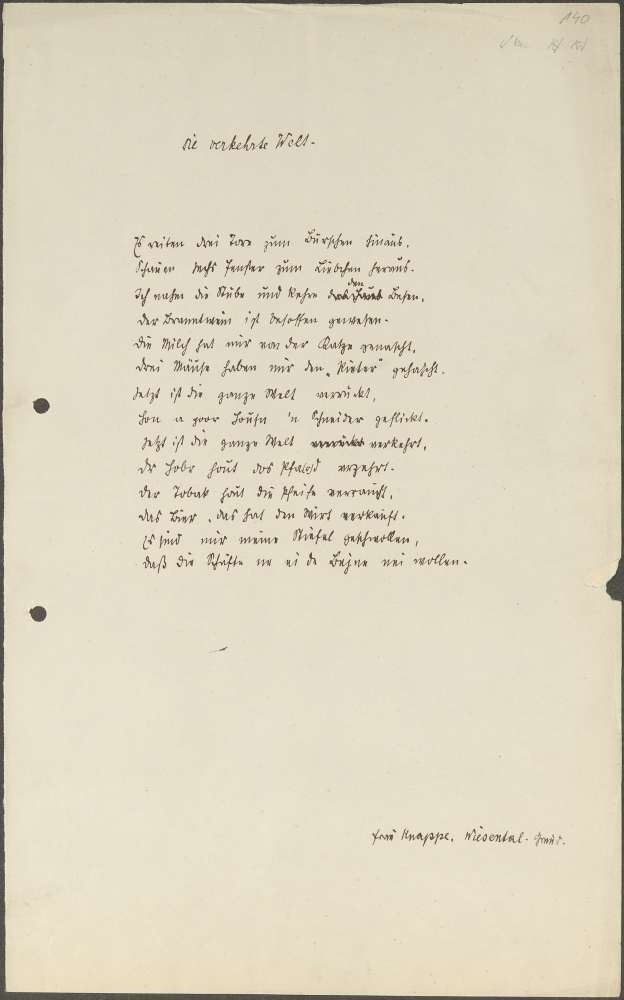 140
Die verkehrte Welt.
Es reiten drei Tore zum Burschen hinaus,
Schauen sechs Fenster zum Liebchen heraus.
Ich nahm die Stube und kehre den Besen,
Der Branntwein ist besoffen gewesen.
Die Milch hat mir von der Katze genascht,
Drei Mäuse haben mir den „Pieter" gehascht.
Jetzt ist die ganze Welt verrückt,
Hon a poor Housn 'n Schneider geflickt.
Jetzt ist die ganze Welt verkehrt,
Dr Hobr hout dos Pfa(r)d verzehrt.
Der Tobak hout die Pfeife verraucht,
Das Bier, das hat den Wirt verkauft.
Es sind mir meine Stiefel geschwollen,
Daß die Schäfte ne ei de Bejne nei wollen.
Frau Knappe, Wiesental.